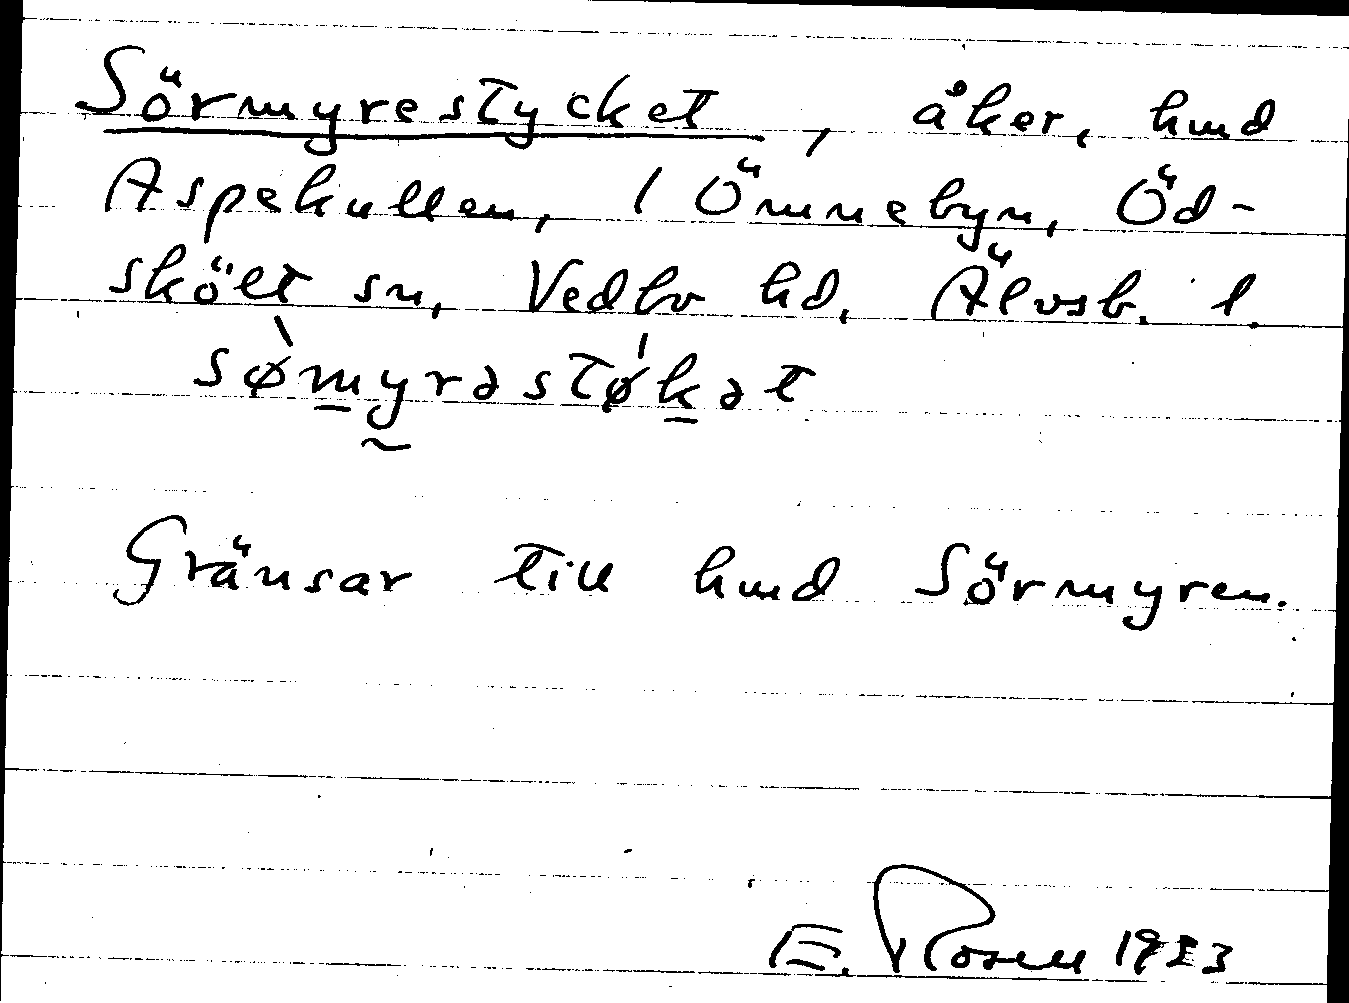 Sörmyrestycket, åker, hmd
Aspekullen, 1 Ömmebyn, Öd-
skölt sn, Vedbo hd, Älvsb. l.
sø̀myrəstǿkət
Gränsar till hmd Sörmyren.
E. Rosell 1933